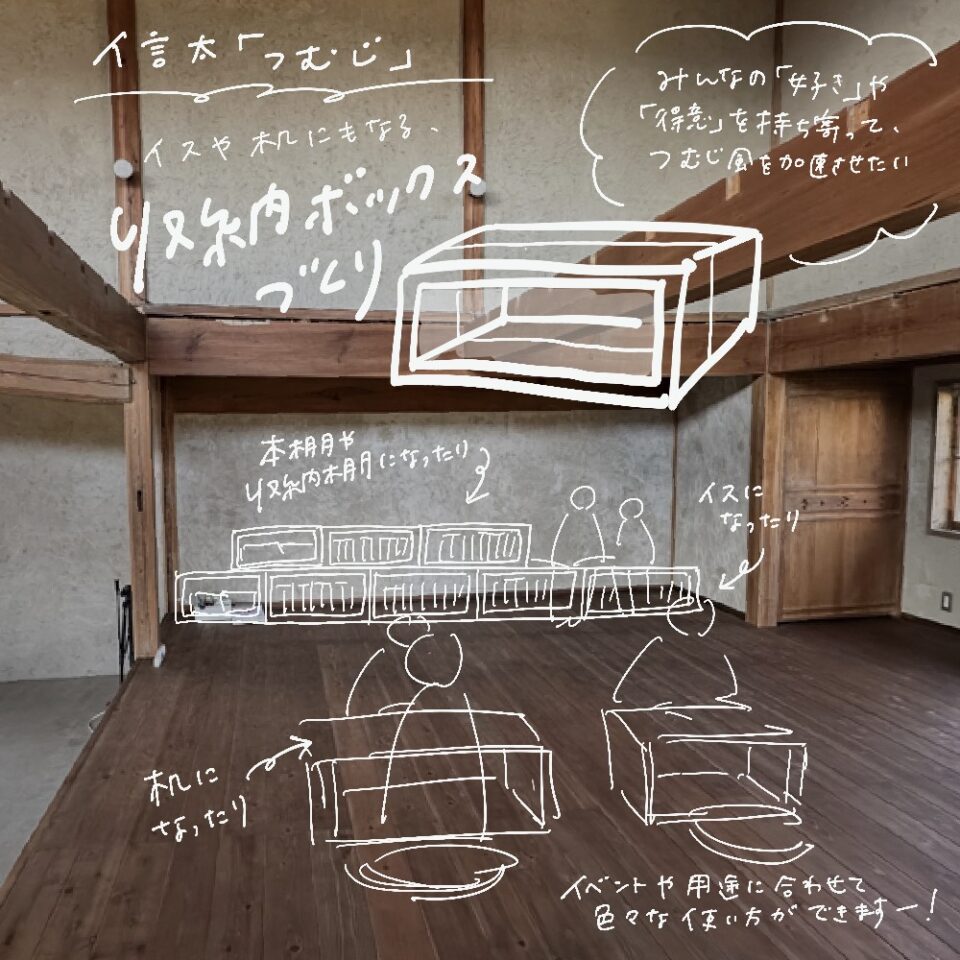 信太「つむじ」
イスや机にもなる、
収納ボックス
づくり
みんなの「好き」や
「得意」を持ち寄って、
つむじ風を加速させたい
本棚や
収納棚になったり
イスに
なったり
机に
なったり
イベントや用途に合わせて
色々な使い方ができますー！